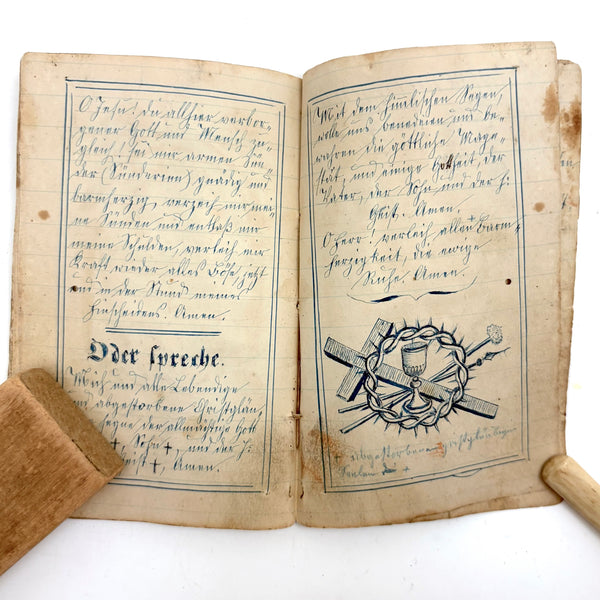 O Jesu! du allhier verbor-
gener Gott und Mensch zu-
gleich! sei mir armen Sün-
der (Sünderien) gnädig und
barmherzig, verzeih mir mei-
ne Sünden und entlaß mir
meine Schulden, verleih mir
Kraft wieder alles Böse, jetzt
und in der Stund meines
Hinscheidens. Amen.
Oder spreche.
Mich und alle Lebendige
und abgestorbene Christglän
segne der allmächtige Gott
† Sohn † und der h:
Geist †, Amen.
Mit dem himlischen Segen,
wolle uns benedeien und be-
wahren die göttliche Maje-
stät, und einige Gottheit, der
Vater, der Sohn und der h:
Geist. Amen.
O Herr! verleih allen aus Barm-
herzigkeit, die ewige
Ruhe. Amen.
† abgestorbenen christgläubigen
Seelen †